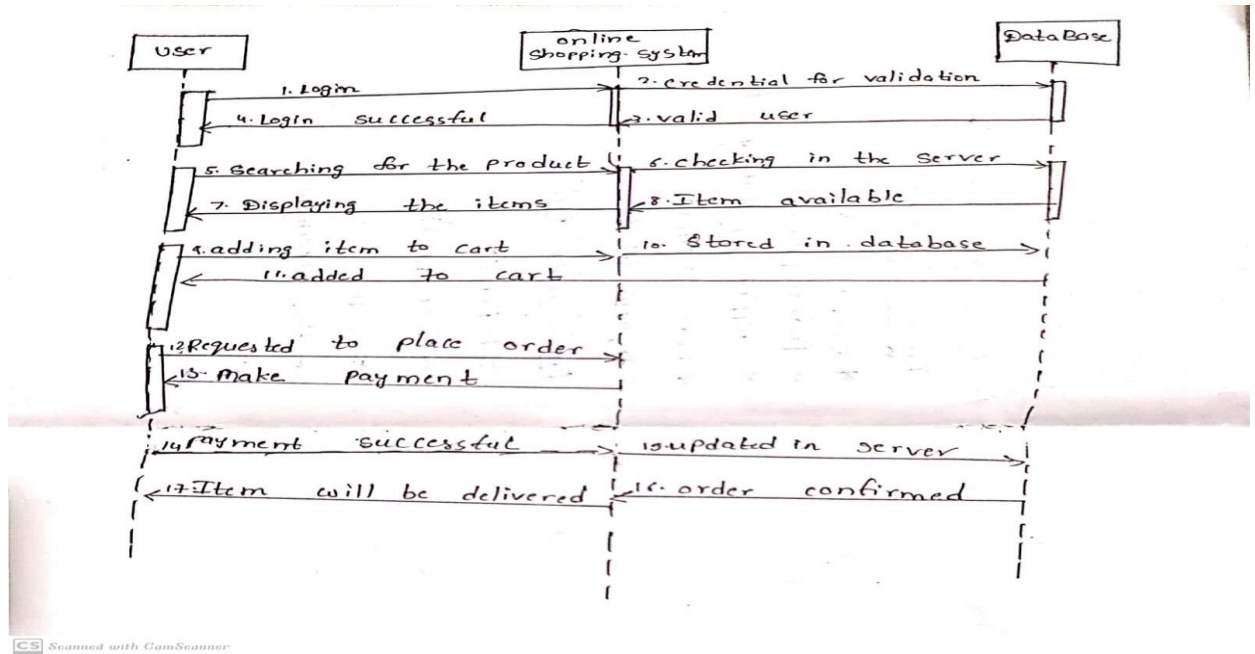 User
online
shopping system
DataBase
1. Login
2. Credential for validation
4. Login successful
3. valid user
5. Searching for the product
6. checking in the server
7. Displaying the items
8. Item available
9. adding item to cart
10. Stored in database
11. added to cart
12. Requested to place order
13. Make payment
14. Payment successful
15. updated in server
17. Item will be delivered
16. order confirmed
CS Scanned with CamScanner